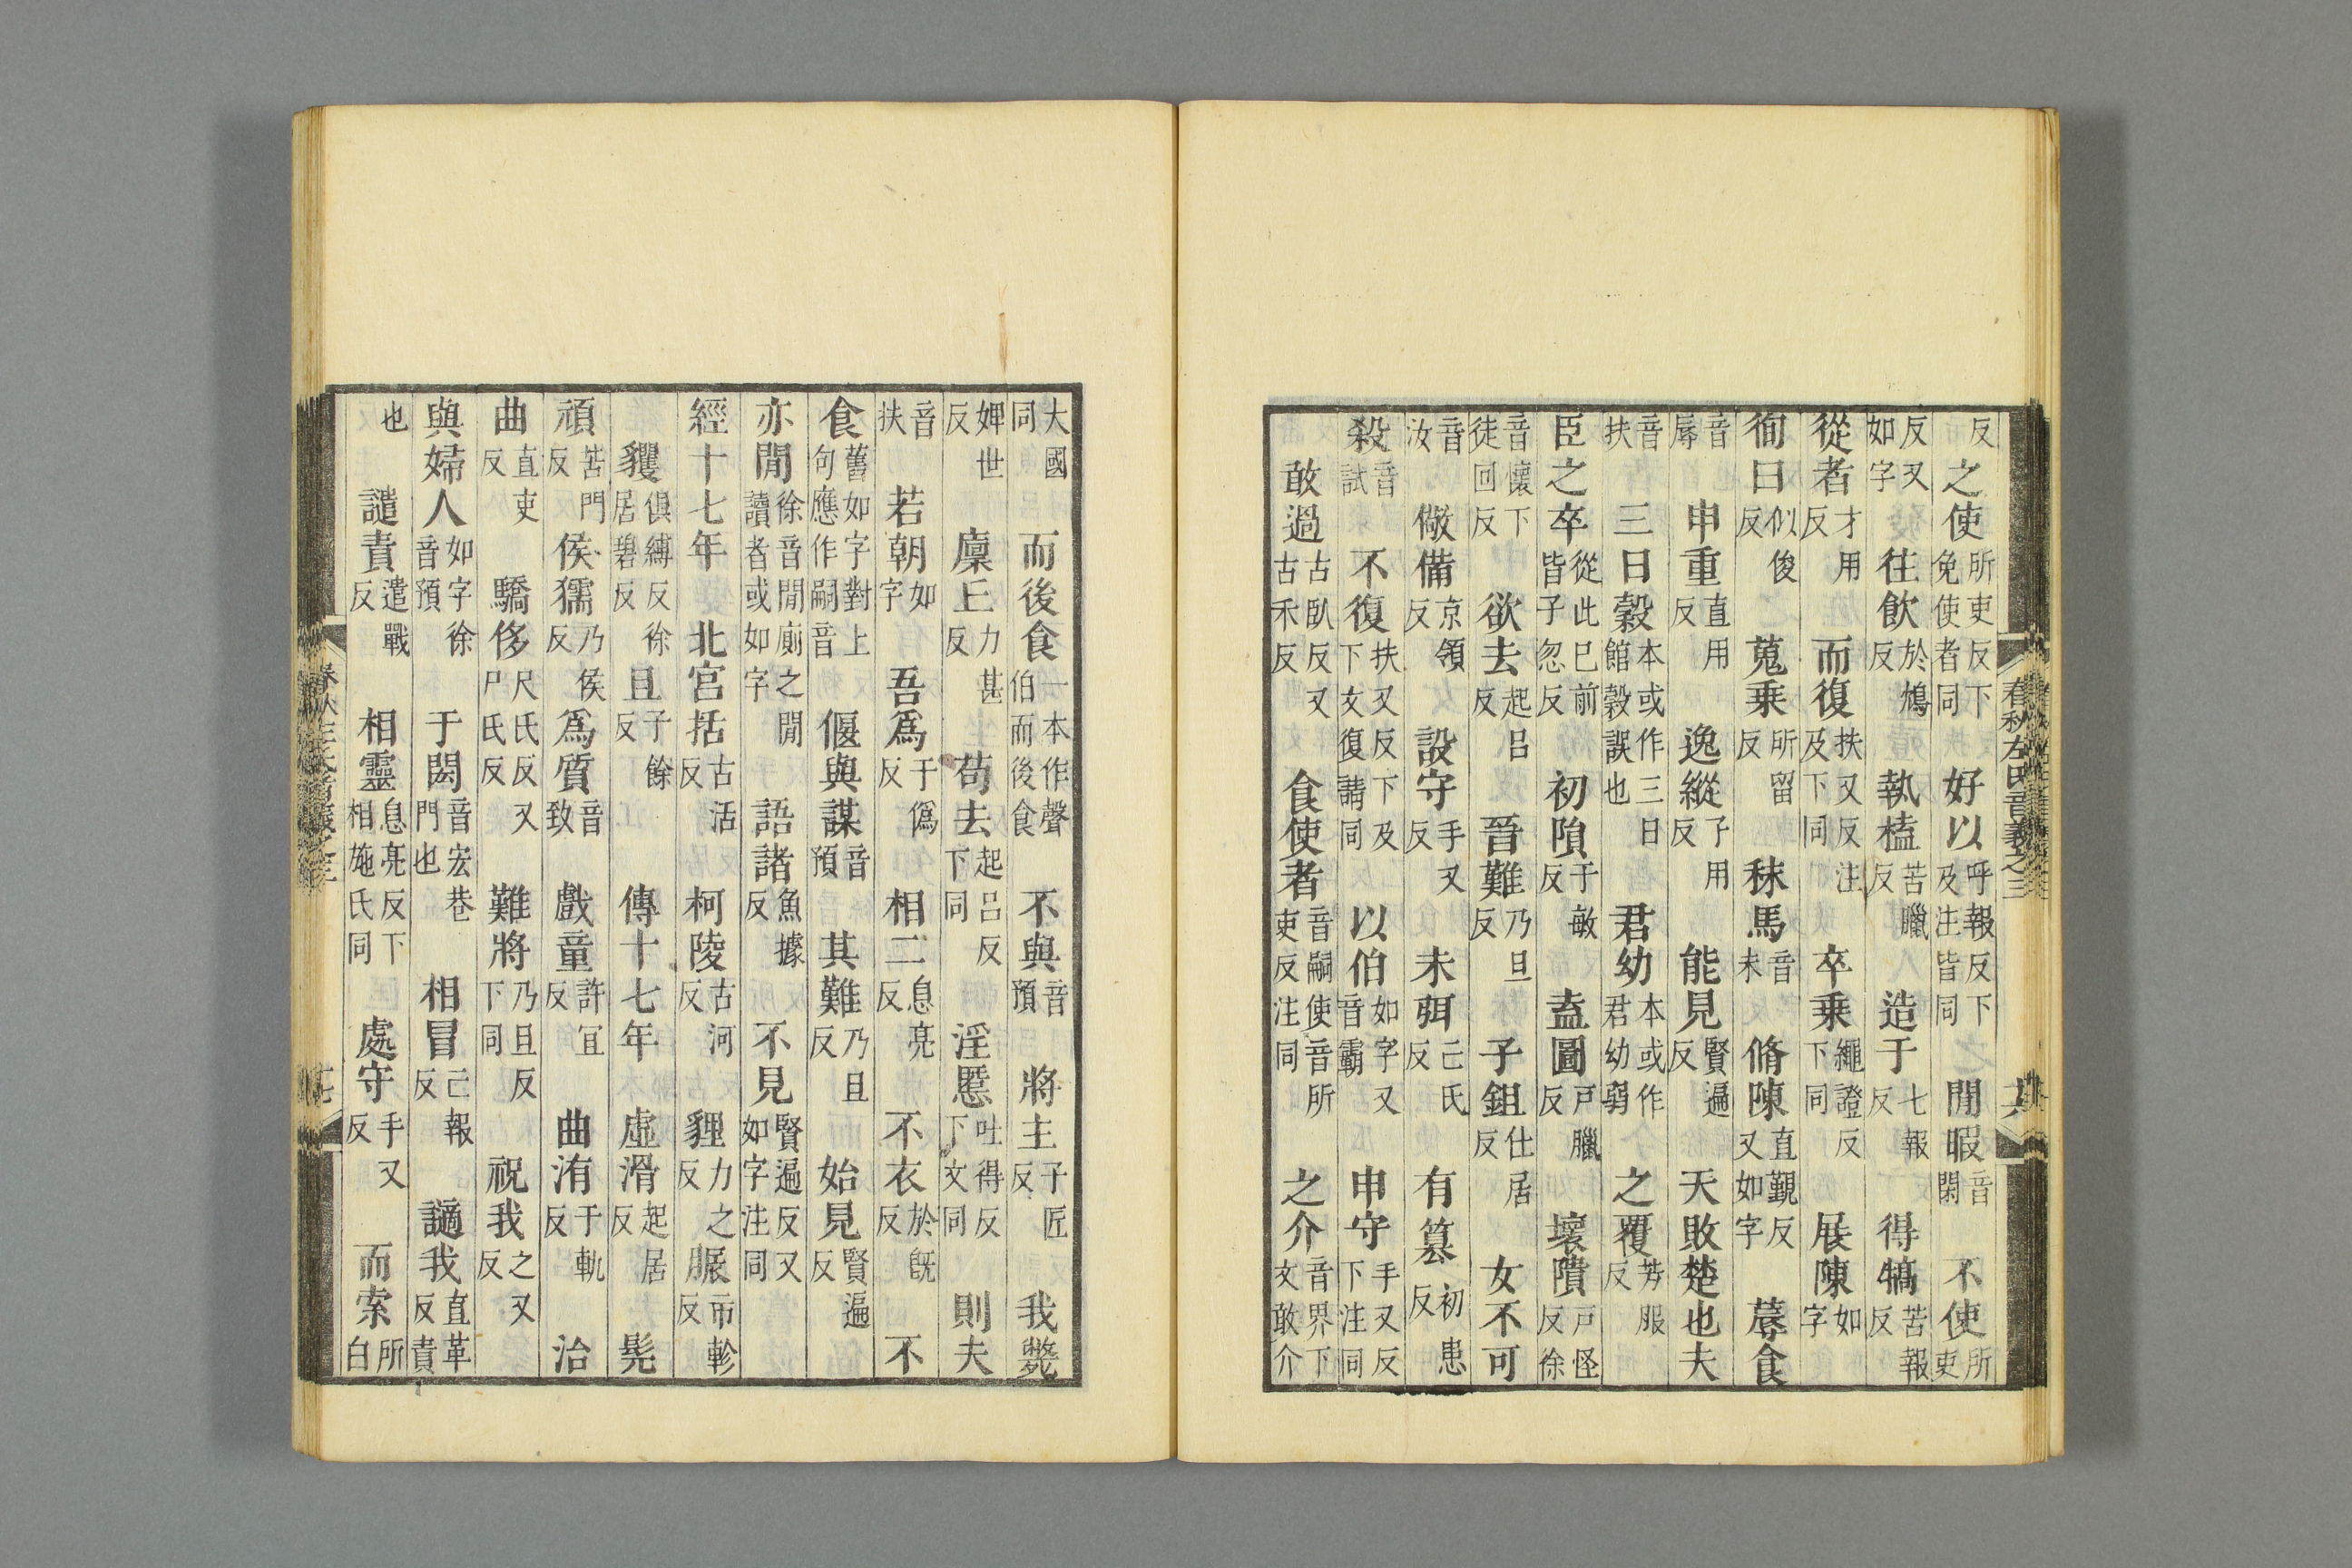 反之使所吏反下免使者同好以呼報反下及注皆同閒暇音閑不使所吏
反又如字往飲於鴆反執榼苦臘反造于七報反得犒苦報反
從者才用反而復扶又反注及下同卒乗繩證反下同展陳如字
徇曰似俊反蒐乗所留反秣馬音末脩陳直覲反又如字蓐食
音辱申重直用反逸縱子用反能見賢遍反天敗楚也夫
音扶三日穀本或作三日館穀誤也君幼本或作君幼弱之覆芳服反
臣之卒從此已前皆子忽反初隕于敏反盍圖戸臘反壞隤戸怪反徐
音懷下徒回反欲去起呂反晉難乃旦反子鉏仕居反女不可
音汝儆備京領反設守手又反未弭己氏反有篡初患反
殺音試不復扶又反下及下文復請同以伯如字又音霸申守手又反下注同
敢過古臥反又古禾反食使者音嗣使音所吏反注同之介音界下文敢介
春秋左氏音義之三
大國同而後食一本作聲伯而後食不與音預將主子匠反我斃
婢世反廩丘力甚反苟去起呂反下同淫慝吐得反下文同則夫
音扶若朝如字吾爲于僞反相二息亮反不衣於旣反不
食舊如字對上句應作嗣音偃與謀音預其難乃且反始見賢遍反
亦閒徐音閒廁之閒讀者或如字語諸魚據反不見賢遍反又如字注同
經十七年北宮括古活反柯陵古河反貍力之反脤市軫反
貜俱縛反徐居碧反且子餘反傳十七年虛滑起居反髡
頑苦門反侯獳乃侯反爲質音致戲童許宜反曲洧于軌反治
曲直吏反驕侈尺氏反又尸氏反難將乃且反下同祝我之又反
與婦人如字徐音預于閎音宏巷門也相冒己報反讁我直革反責
也譴責遣戰反相靈息亮反下相施氏同處守手又反而索所白